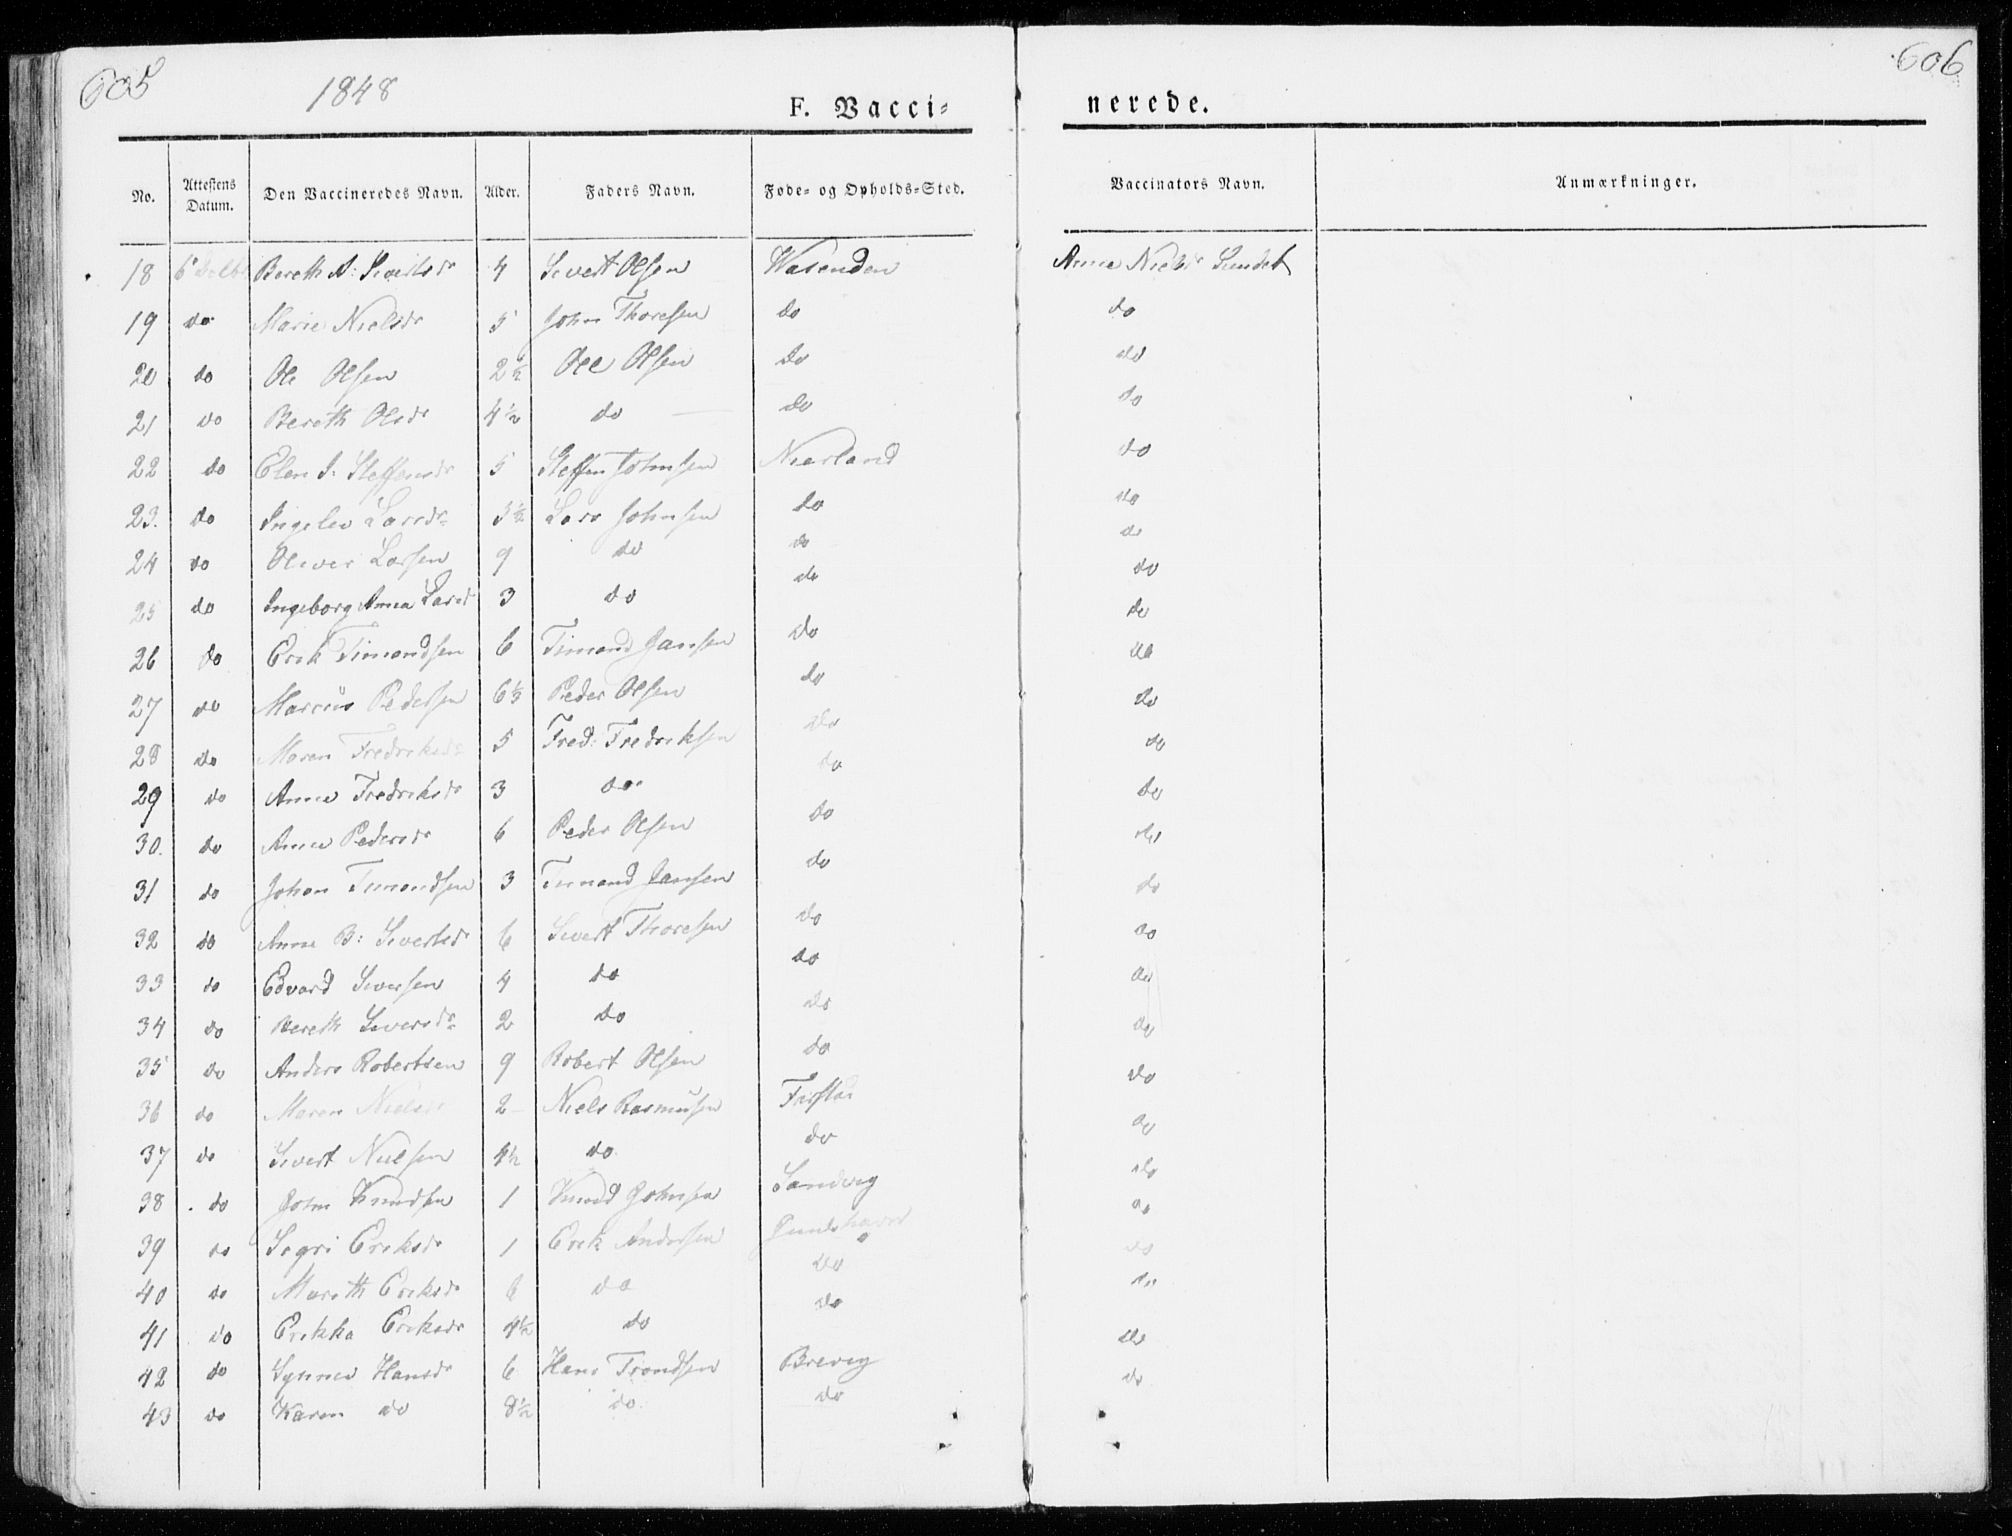 605 1848 606
F. Vacci= nerede.
No. Attestens Datum. Den Vaccineredes Navn. Alder. Faders Navn. Føde= og Opholds=Sted. Vaccinators Navn. Anmærkninger.
18 Bereth A: Sivertsdr 4 Sivert Olsen Wasenden Anne Nielsdr Sundet
19 do Marie Nielsdr 5 John Thoresen do do
20 do Ole Olsen 2½ Ole Olsen do do
21 do Bereth Olsdr 4½ do do do
22 do Elen S: Steffensdr 5 Steffen Johnsen Nierland do
23. do Ingelev Larsdr Lars Johnsen do do
24 do Oliver Larsen 9 do do do
25 do Ingeborg Anna Larsdr 3 do do do
26 do Erik Timandsen 6 Timand Jansen do do
27 do Marcus Pedersen 6½ Peder Olsen do do
28 do Maren Fredriksdr 5 Fred: Fredriksen do do
29 do Anne Fredriksdr 3 do do do
30. do Anne Pedersdr 6 Peder Olsen do do
31 do Johan Timandsen 3 Timand Jansen do do
32 do Anne B: Sivertsdr 6 Sivert Thoresen do do
33 do Edvard Siversen 4 do do do
34 do Bereth Siversdr 2 do do do
35 do Anders Robertsen 9 Robert Olsen do do
36 do Maren Nielsdr 2 Niels Rasmusen Farstai do
37 do Sivert Nielsen 4½ do do do
38 do John Knudsen 1 Knud Johnsen Sandvig do
39 do Segri Eriksdr 1 Erik Andersen do
40 do Mareth Eriksdr 6 do do do
41 do Erikka Eriksdr 4½ do do do
42 do Synnev Hansdr 6 Hans Trondsen Brevig do
43 do Karen do 8½ do do